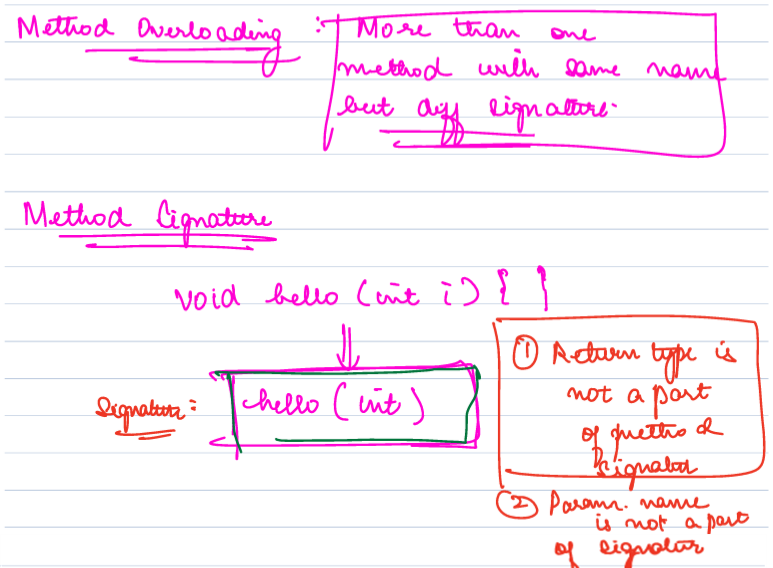 Method Overloading : More than one
method with same name
but diff signature.
Method Signature
void hello (int i) { }
Signature: hello (int)
① Return type is
not a part
of method
signatur
② Param. name
is not a part
of signatur